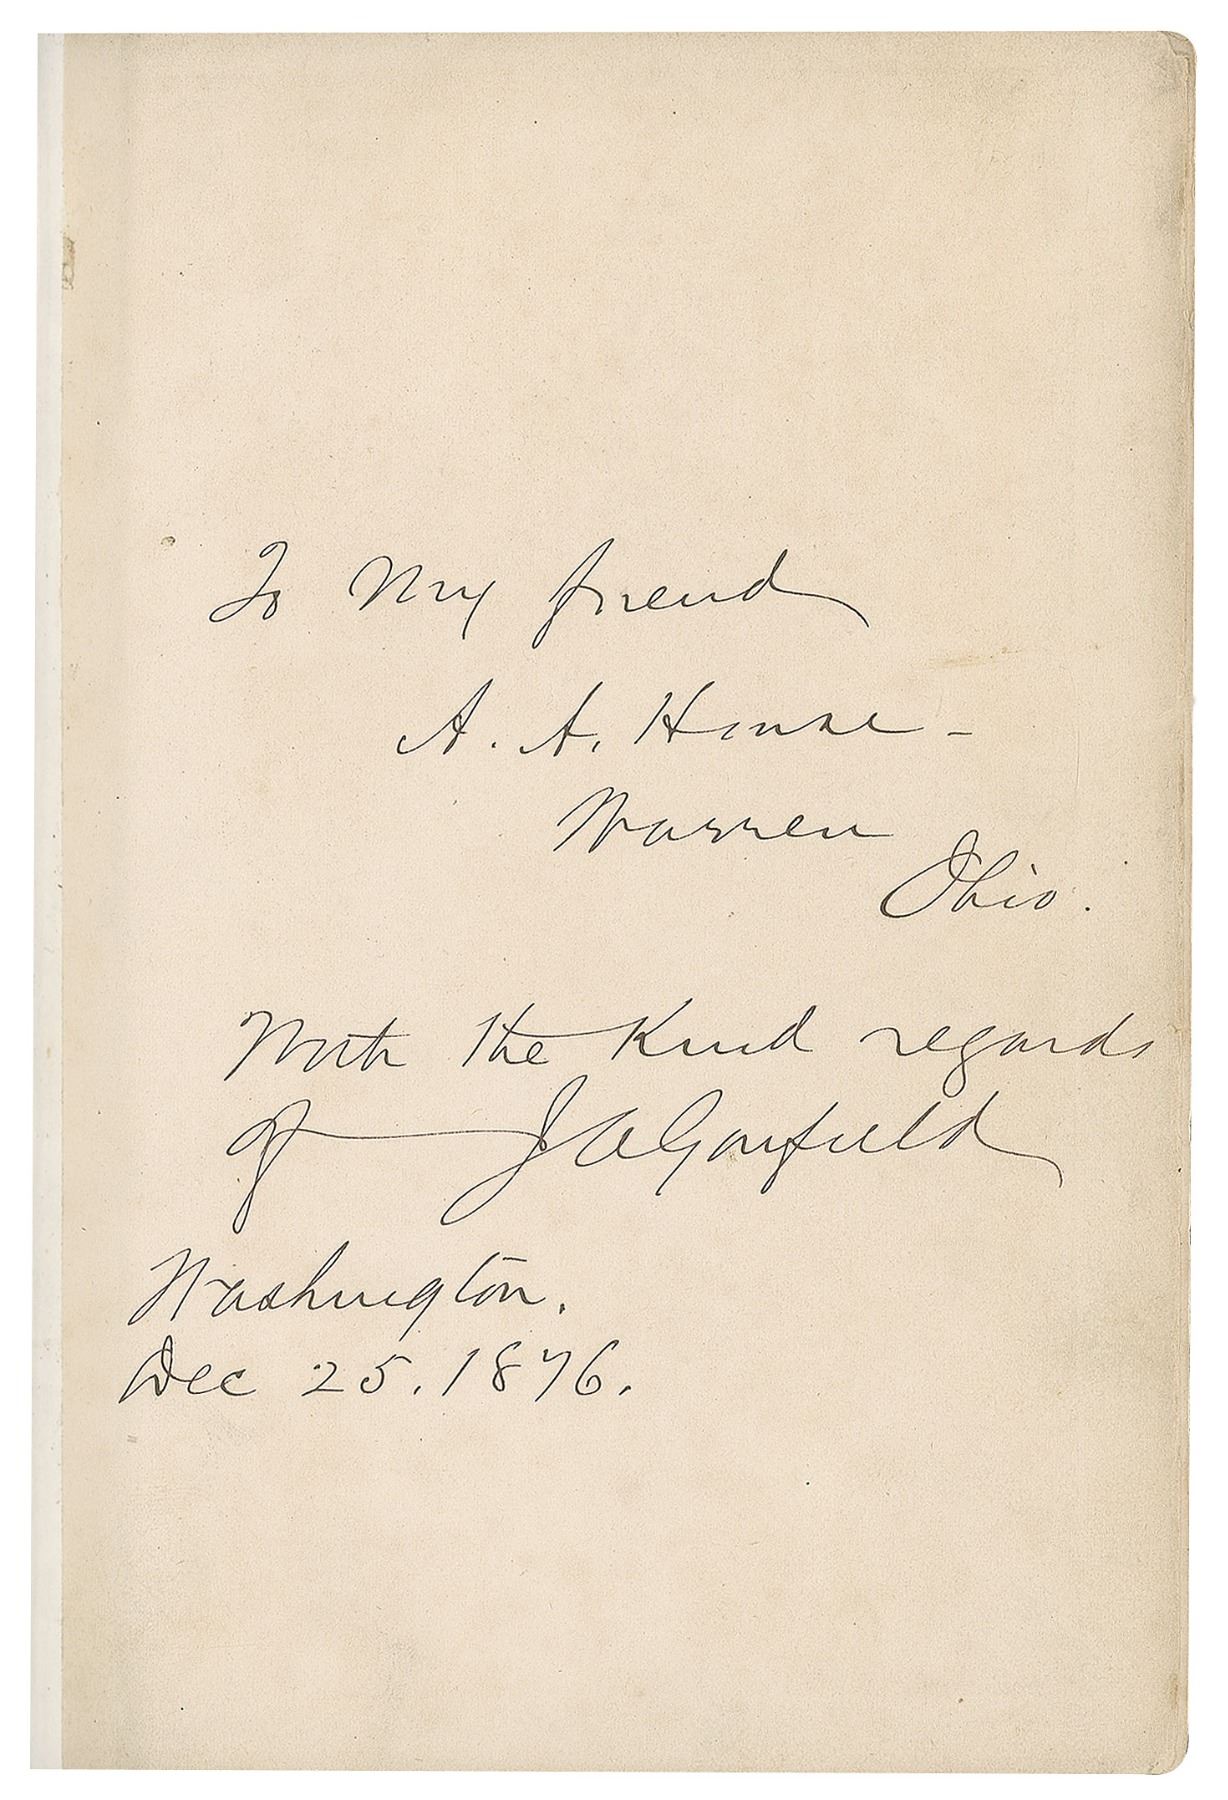 To My friend
A. A. House –
Warren
Ohio.
With the Kind regards
of J A Garfield
Washington.
Dec 25. 1876.